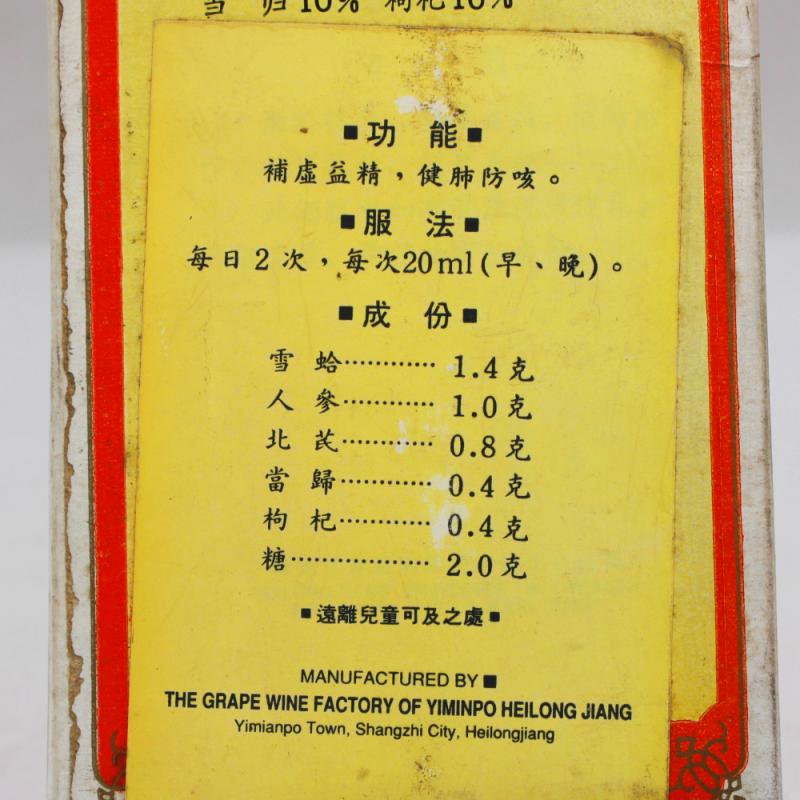 当 归 10% 枸杞 10%
■功 能■
補虛益精，健肺防咳。
■服 法■
每日2次，每次20ml(早、晚)。
■成 份■
雪 蛤············ 1.4克
人 參············ 1.0克
北 芪············ 0.8克
當 歸············ 0.4克
枸 杞············ 0.4克
糖·················· 2.0克
■遠離兒童可及之處■
MANUFACTURED BY ■
THE GRAPE WINE FACTORY OF YIMINPO HEILONG JIANG
Yimianpo Town, Shangzhi City, Heilongjiang